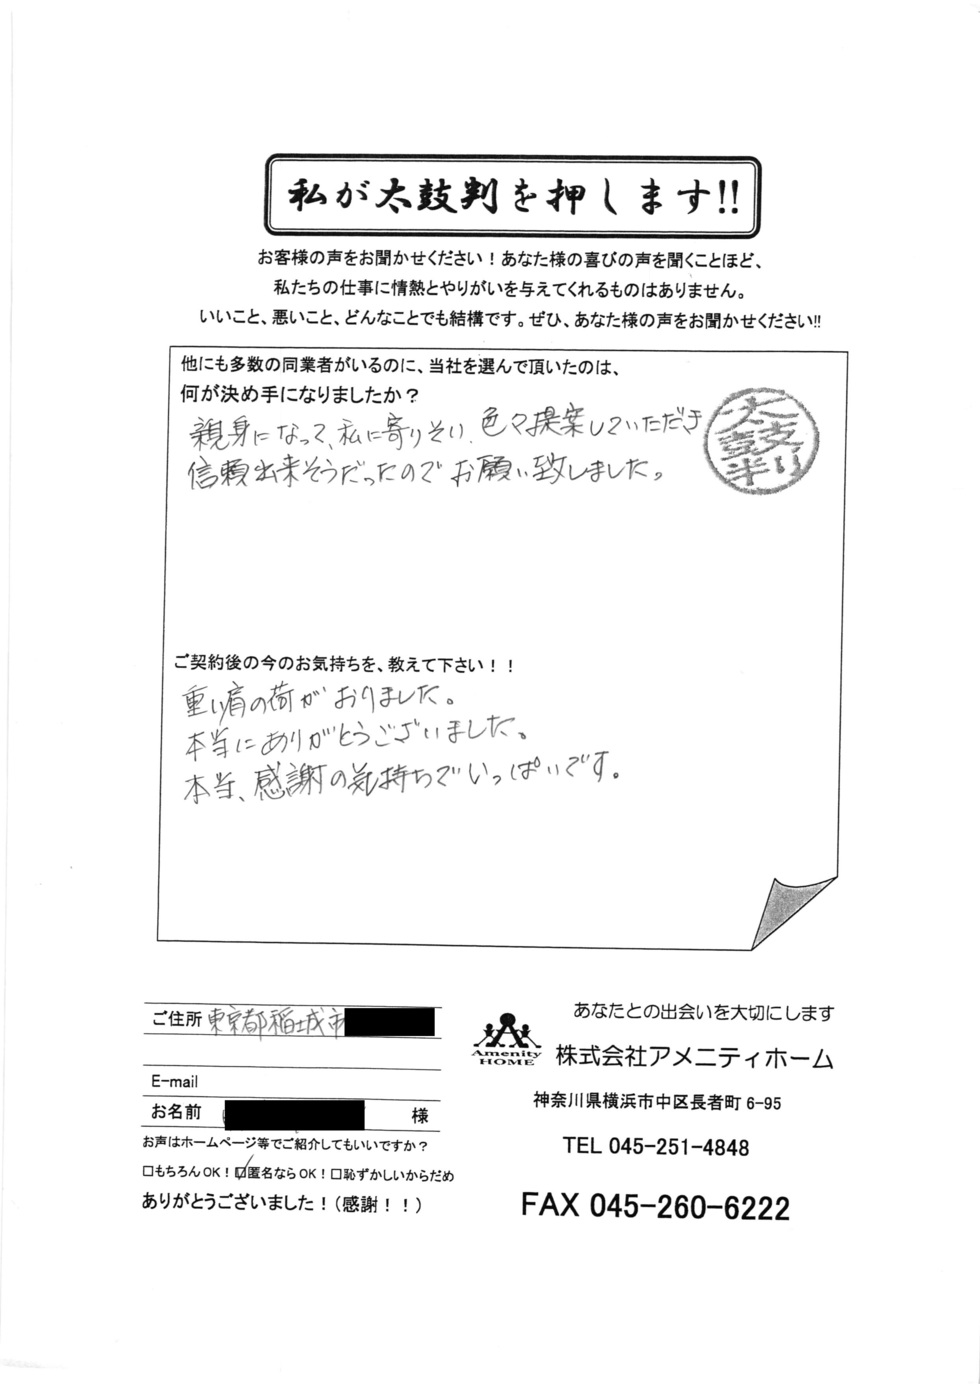 私が太鼓判を押します!!
お客様の声をお聞かせください！あなた様の喜びの声を聞くことほど、
私たちの仕事に情熱とやりがいを与えてくれるものはありません。
いいこと、悪いこと、どんなことでも結構です。ぜひ、あなた様の声をお聞かせください!!
他にも多数の同業者がいるのに、当社を選んで頂いたのは、
何が決め手になりましたか？
親身になって、私に寄りそい、色々提案していただき
信頼出来そうだったのでお願い致しました。
太鼓判
ご契約後の今のお気持ちを、教えて下さい！！
重い肩の荷がおりました。
本当にありがとうございました。
本当、感謝の気持ちでいっぱいです。
ご住所 東京都稲城市
E-mail
お名前 様
お声はホームページ等でご紹介してもいいですか？
□もちろんOK！☑匿名ならOK！□恥ずかしいからだめ
ありがとうございました！（感謝！！）
あなたとの出会いを大切にします
Amenity
HOME
株式会社アメニティホーム
神奈川県横浜市中区長者町 6-95
TEL 045-251-4848
FAX 045-260-6222